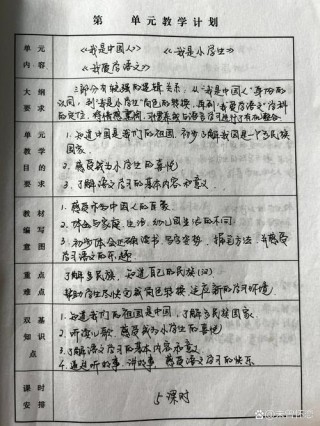 第 单元教学计划
单元内容
《我是中国人》 《我是小学生》
《我爱学语文》
大纲要求
三部分有较强的逻辑关系,从"我是中国人"身份的
认同,到"我是小学生"角色的转换,再到"我爱学语文"学科
的定位,
单元教学目的要求
1.知道中国是我们的祖国,初步了解我国是一个多民族
国家。
2.感受成为小学生的喜悦
3.了解语文学习的基本内容和意义。
教材编写意图
1.感受作为中国人的自豪。
2.体会与家庭生活、幼儿园生活的不同
3.初步体会正确读书、写字姿势、握笔方法,并感受
学习语文的乐趣
重点难点
了解多民族,知道自己的民族(汉)
帮助学生尽快完成角色转换,适应新的学习环境
双基知识点
1.知道我们的祖国是中国,了解多民族国家。
2.听读儿歌,感受成为小学生的喜悦
3.了解语文学习的基本内容和意义
4.通过听故事、讲故事,感受语文学习的快乐
课时安排
5课时